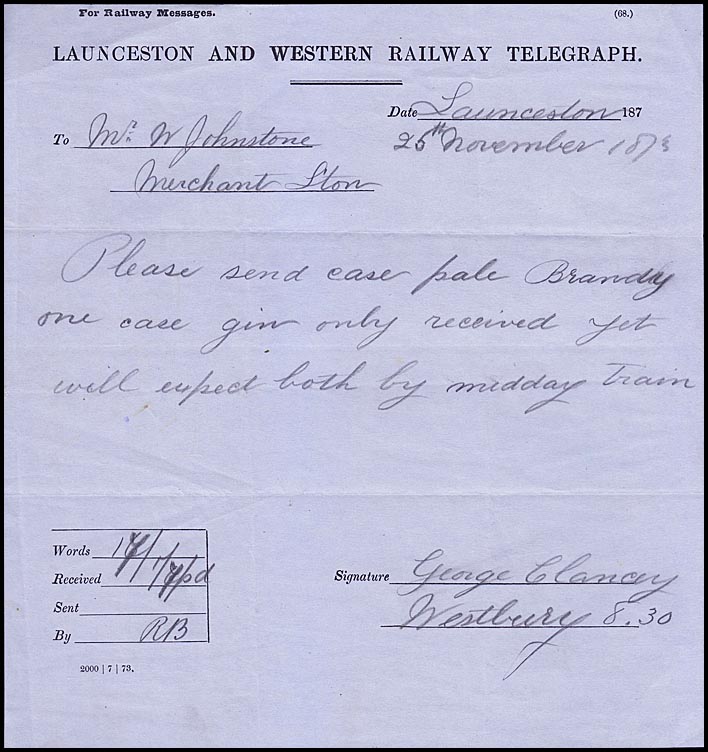 For Railway Messages. (68.)
LAUNCESTON AND WESTERN RAILWAY TELEGRAPH.
Date Launceston 187
25th November 1873
To Mr. W Johnstone
Merchant L'ton
Please send case pale Brandy
one case gin only received yet
will expect both by midday train
Words
Received pd
Sent
By RB
Signature George Clancey
Westbury 8.30
2000 | 7 | 73.